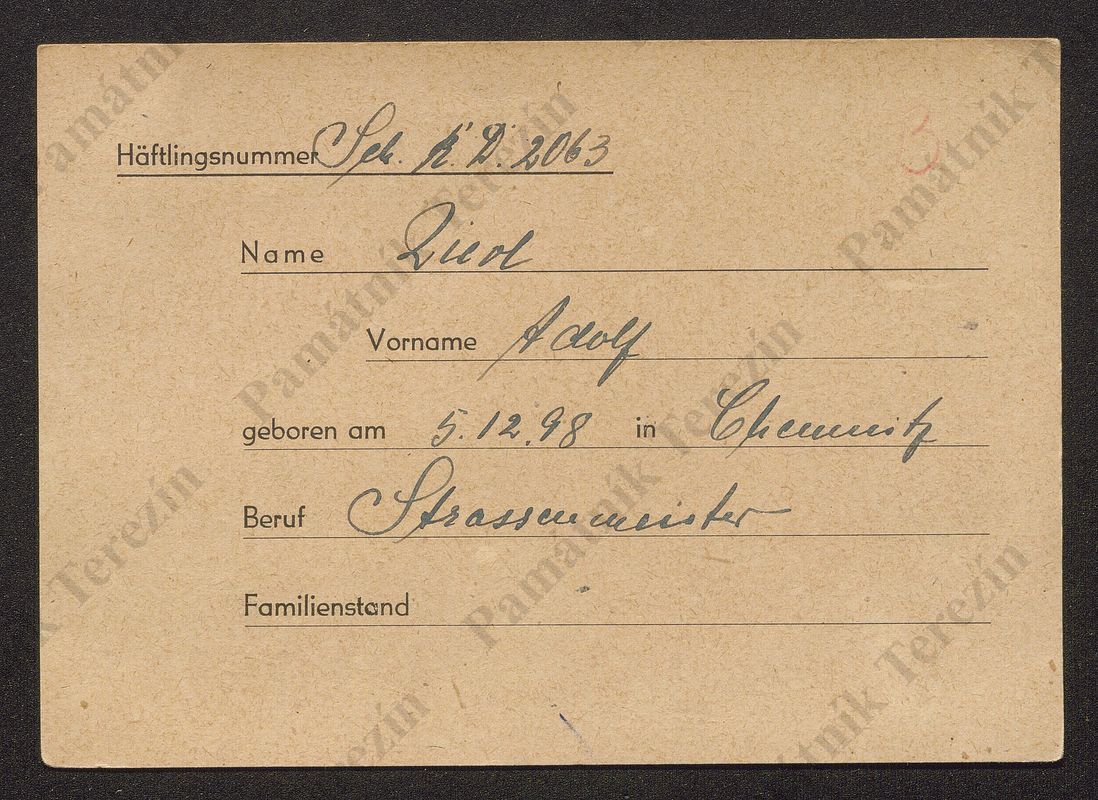 Häftlingsnummer Sch. K. D. 2063
Name
Vorname Adolf
geboren am 5.12.98 in Chemnitz
Beruf Strassenmeister
Familienstand
Památník Terezín